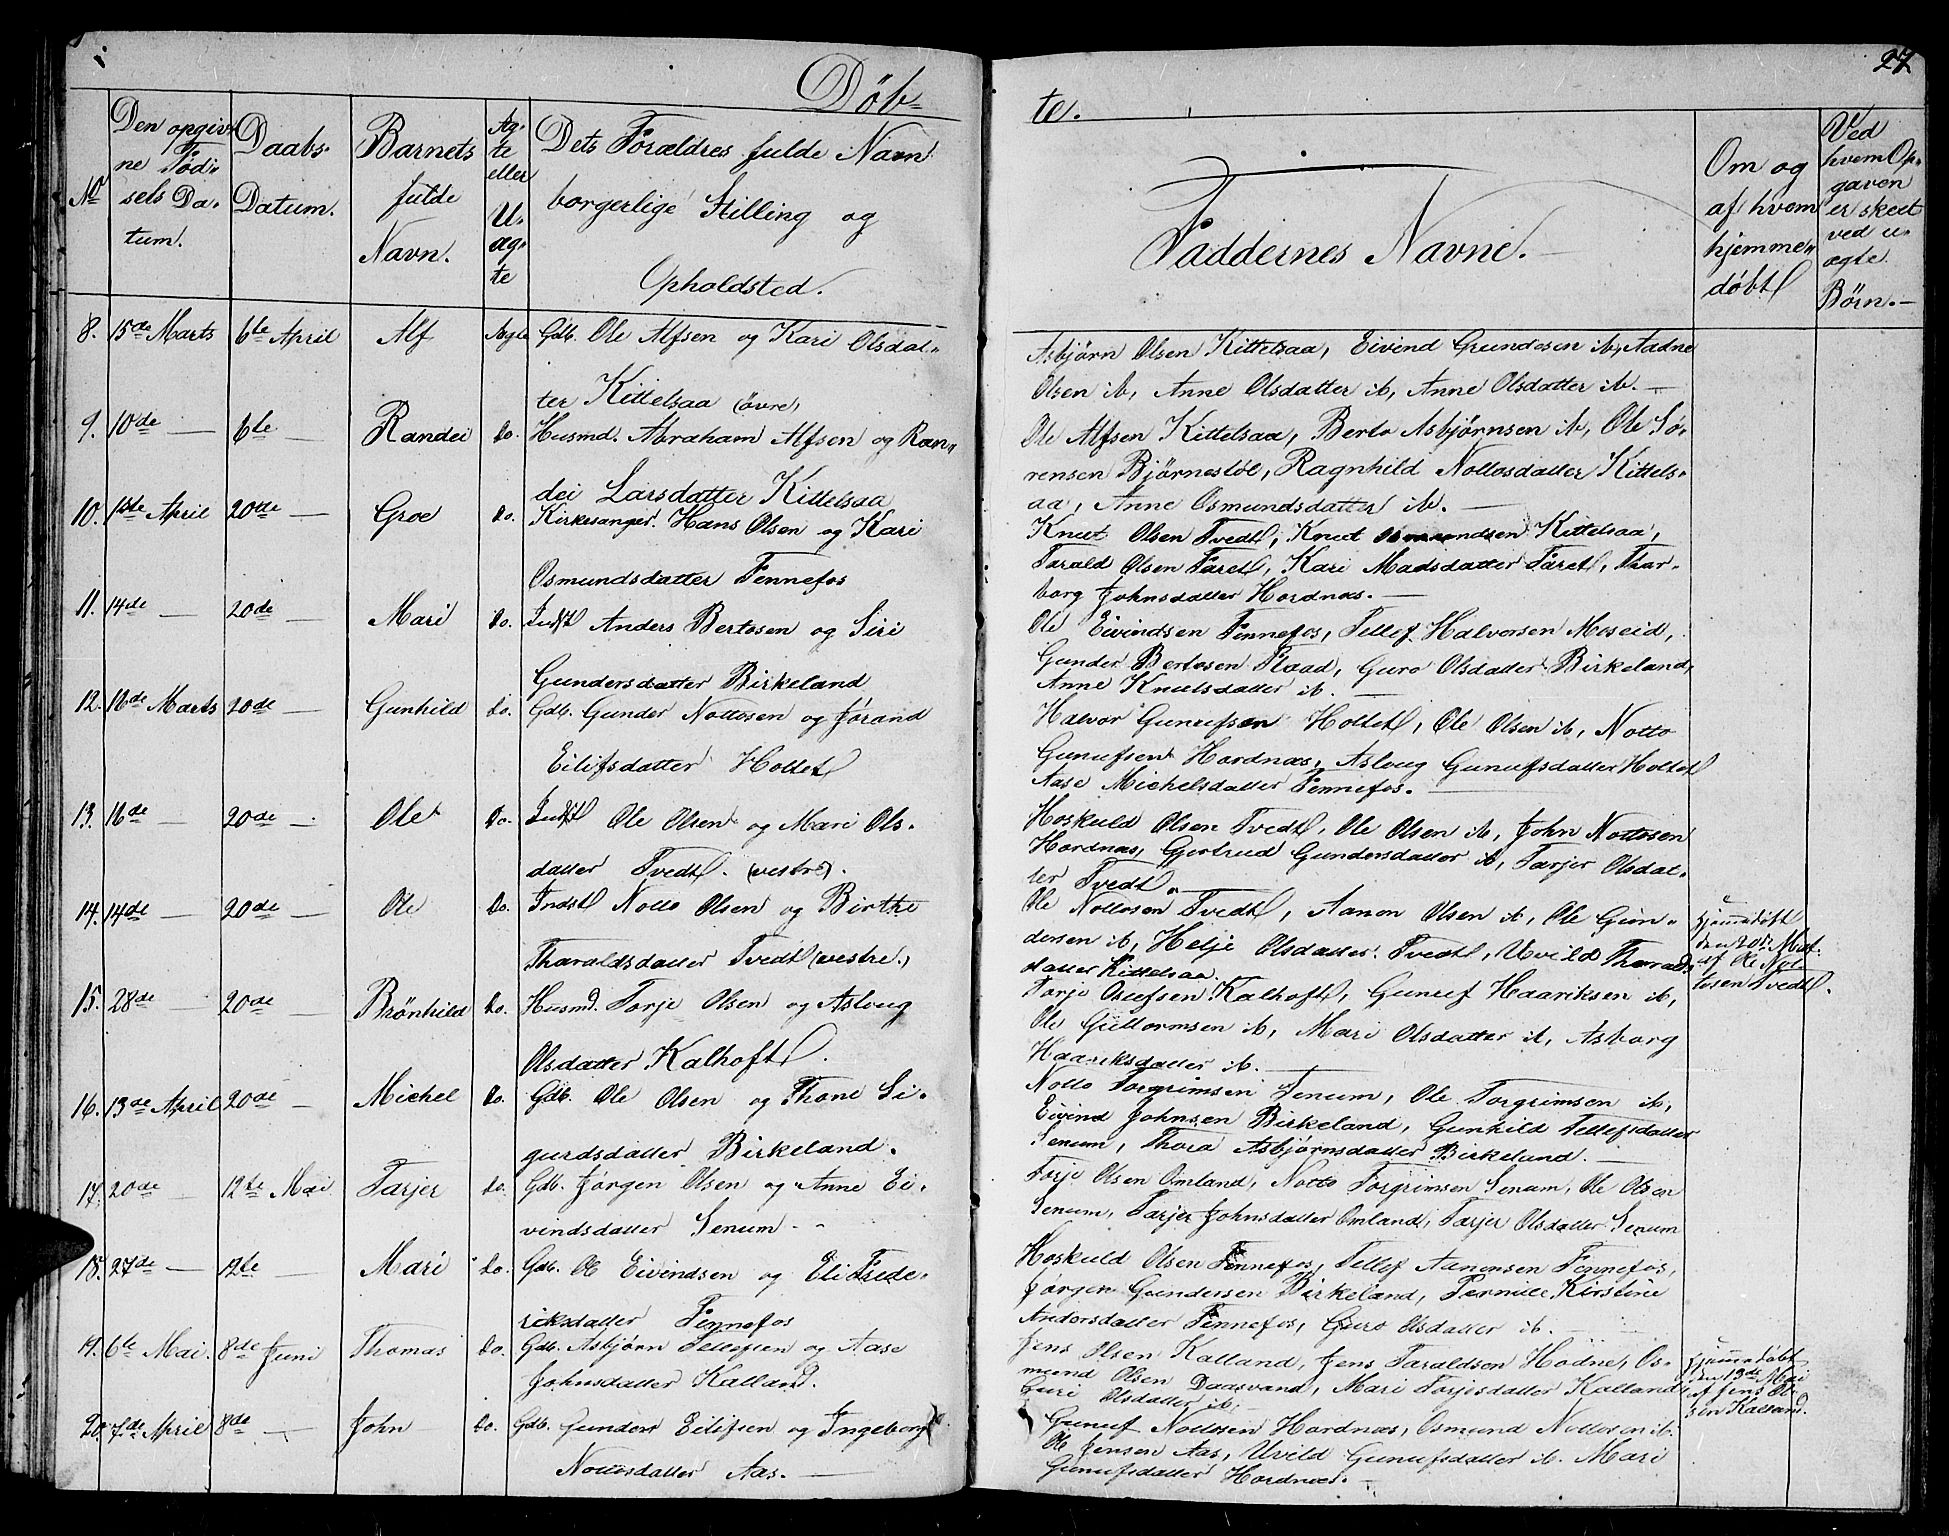 Döb-
te.
27
No
Den opgiv-
ne Föd-
sels Da-
tum.
Daabs-
Datum.
Barnets
fulde
Navn.
Æg-
te
eller
U-
æg-
te
Dets Forældres fulde Navn
borgerlige Stilling og
Opholdsted.
Faddernes Navne.
Om og
af hvem
hjemme-
døbt
Ved
hvem Op-
gaven
er skeet
ved u-
ægte
Børn.
8. 15de Marts 6te April Alf Ægte Gdb. Ole Alfsen og Kari Olsdat-
ter Kittelsaa (övre)
Asbjörn Olsen Kittelsaa, Eivind Gundesen ib, Aadne
Olsen ib, Anne Olsdatter ib, Anne Olsdatter ib.
9. 10de — 6te — Randei Do. Husmd. Abraham Alfsen og Ran-
dei Larsdatter Kittelsaa
Ole Alfsen Kittelsaa, Berto Asbjörnsen ib, Ole Sö-
rensen Björnestöl, Ragnhild Nottosdatter Kittels-
aa, Anne Osmundsdatter ib.
10. 1ste April 20de — Groe Do. Kirkesanger Hans Olsen og Kari
Osmundsdatter Fennefos
Knut Olsen Tvedt, Knut Osmundsen Kittelsaa,
Tarald Olsen Faret, Kari Madsdatter Faret, Thar-
borg Johnsdatter Hordnæs.
11. 14de — 20de — Mari Do. Indst Anders Bertosen og Siri
Gundersdatter Birkeland
Ole Eivindsen Fennefos, Tellef Halvorsen Moseid,
Gunder Bertosen Flaad, Guro Olsdatter Birkeland,
Anne Knutsdatter ib.
12. 16de Marts 20de — Gunhild Do. Gdb. Gunder Nottosen og Jörand
Eilifsdatter Holtet
Halvor Gunufsen Holtet, Ole Olsen ib, Notto
Gunufsen Hordnæs, Asloug Gunufsdatter Holtet
Aase Michelsdatter Fennefos.
13. 16de — 20de — Ole Do. Indst Ole Olsen og Mari Ols-
datter Tvedt. (vestre).
Hoskuld Olsen Tvedt, Ole Olsen ib, John Nottosen
Hordnæs, Gjertrud Gundersdatter ib, Tarjer Olsdat-
ter Tvedt.
14. 14de — 20de — Ole Do. Indst Notto Olsen og Birthe
Tharaldsdatter Tvedt (vestre.)
Ole Nottosen Tvedt, Aanon Olsen ib, Ole Gun-
dersen ib, Helje Olsdatter Tvedt, Uvild Tharalds
datter Kittelsaa.
Hjemmedöbt
den 20de Mart.
af Ole Not-
tosen Tvedt.
15. 28de — 20de — Brönhild Do. Husmd. Torje Olsen og Asloug
Olsdatter Kalhoft.
Torje Olufsen Kalhoft, Gunuf Haariksen ib,
Ole Guttormsen ib, Mari Olsdatter ib, Asborg
Haariksdatter ib.
16. 13de April 20de — Michel Do. Gdb. Ole Olsen og Thone Si-
gurdsdatter Birkeland.
Notto Torgrimsen Senum, Ole Torgrimsen ib,
Eivind Johnsen Birkeland, Gunhild Tellefsdatter
Senum, Thora Asbjörnsdatter Birkeland.
17. 20de — 12te Mai Tarjer Do. Gdb. Jörgen Olsen og Anne Ei-
vindsdatter Senum
Torje Olsen Omland, Notto Torgrimsen Senum, Ole Olsen
Senum, Tarjer Johnsdatter Omland, Tarjer Olsdatter Senum
18. 27de — 12te — Mari Do. Gdb. Ole Eivindsen og Eli Frede-
riksdatter Fennefos
Hoskuld Olsen Fennefos, Tellef Aanensen Fennefos,
Jörgen Gundersen Birkeland, Pernille Kirstine
Andersdatter Fennefos, Guro Olsdatter ib.
19. 6te Mai. 8de Juni Thomas Do. Gdb. Asbjörn Tellefsen og Aase
Johnsdatter Kalland.
Jens Olsen Kalland, Jens Taraldsen Hodne, Os-
mund Olsen Daasvand, Mari Torjesdatter Kalland
Guri Olsdatter ib.
Hjemmedöbt
den 13de Mai
af Jens Ol-
sen Kalland.
20. 7de April 8de — John Do. Gdb. Gunder Eilefsen og Ingeborg
Nottosdatter Aas.
Gunuf Nottosen Hordnæs, Osmund Nottosen ib.
Ole Jensen Aas, Uvild Gunufsdatter ib. Mari
Gunufsdatter Hordnæs.